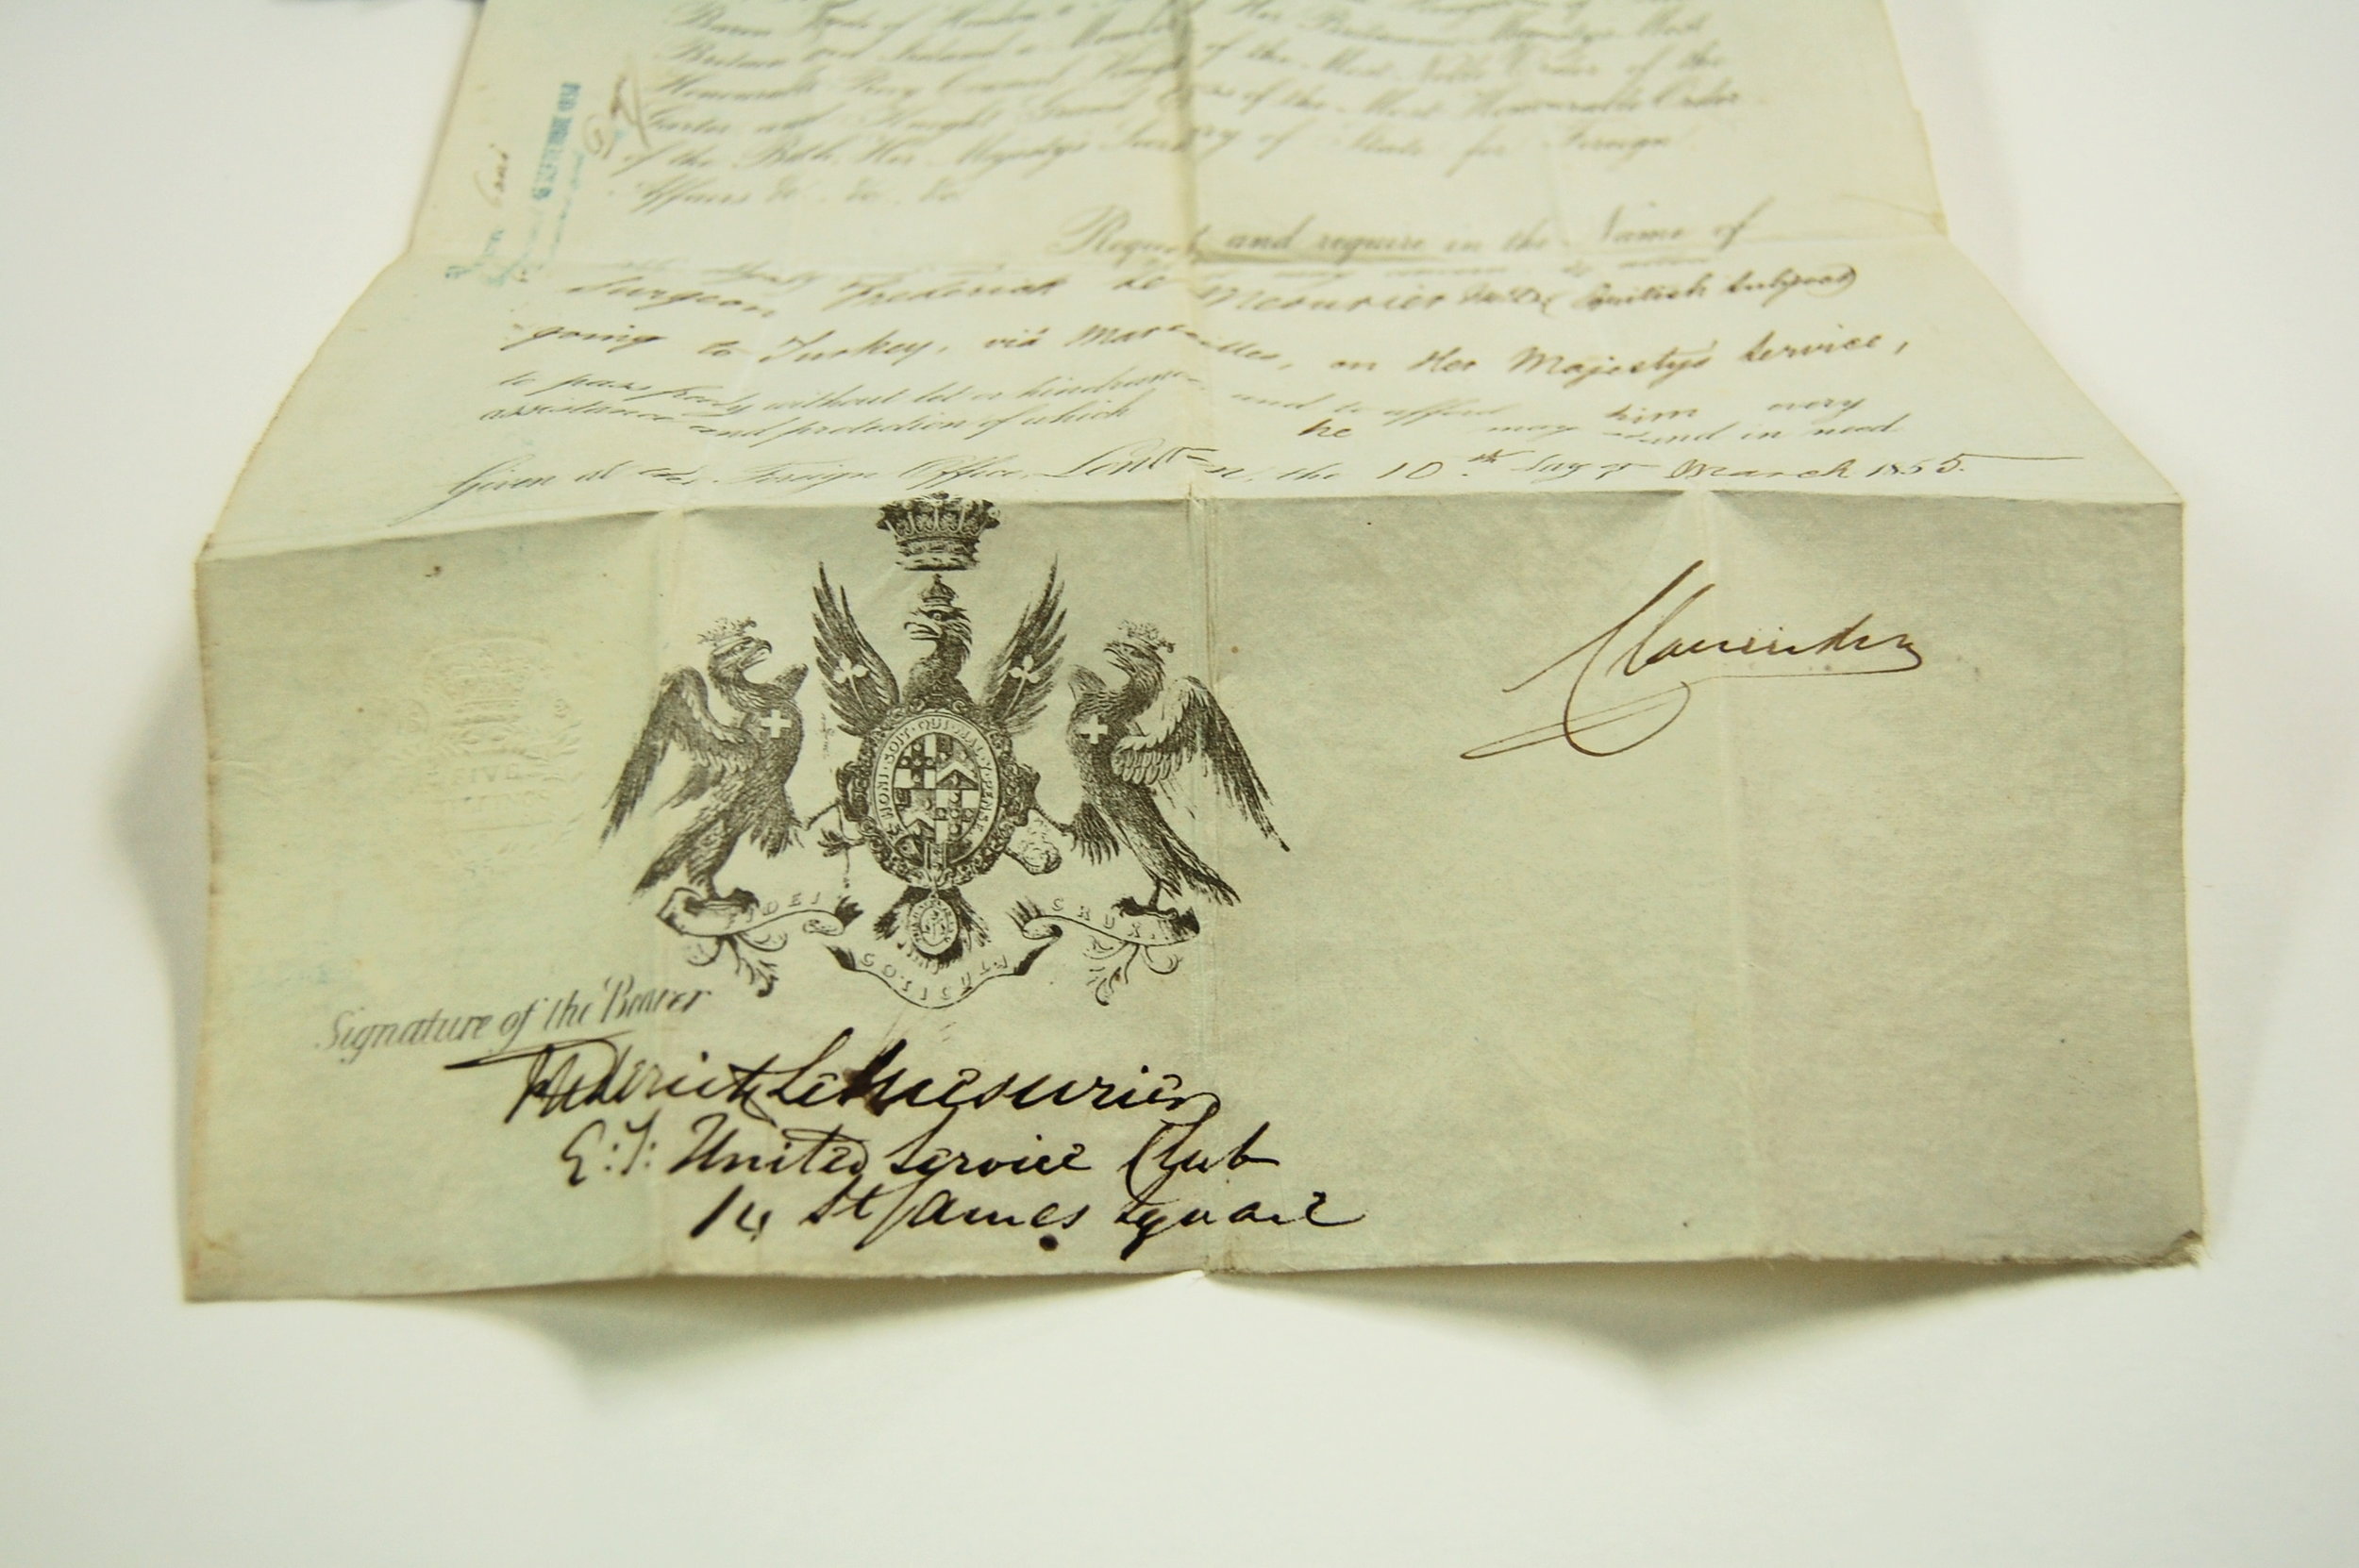 Britain and Ireland a Member of Her Britannic Majesty's Most
Honourable Privy Council Knight of the Most Noble Order of the
Garter and Knight Grand Cross of the Most Honourable Order
of the Bath, Her Majesty's Secretary of State for Foreign
Affairs &c. &c. &c.
Request and require in the Name of
Surgeon Frederick Le Mesurier (British Subject)
going to Turkey, via Marseilles, on Her Majesty's Service,
to pass freely without let or hindrance and to afford him every
assistance and protection of which he may stand in need
Given at the Foreign Office, London, the 10th day of March 1855.
Clarendon
HONI·SOIT·QUI·MAL·Y·PENSE
FIVE
FIDEI COTICULA CRUX
Signature of the Bearer
Frederick LeMesurier
E: I: United Service Club
14 St James Square